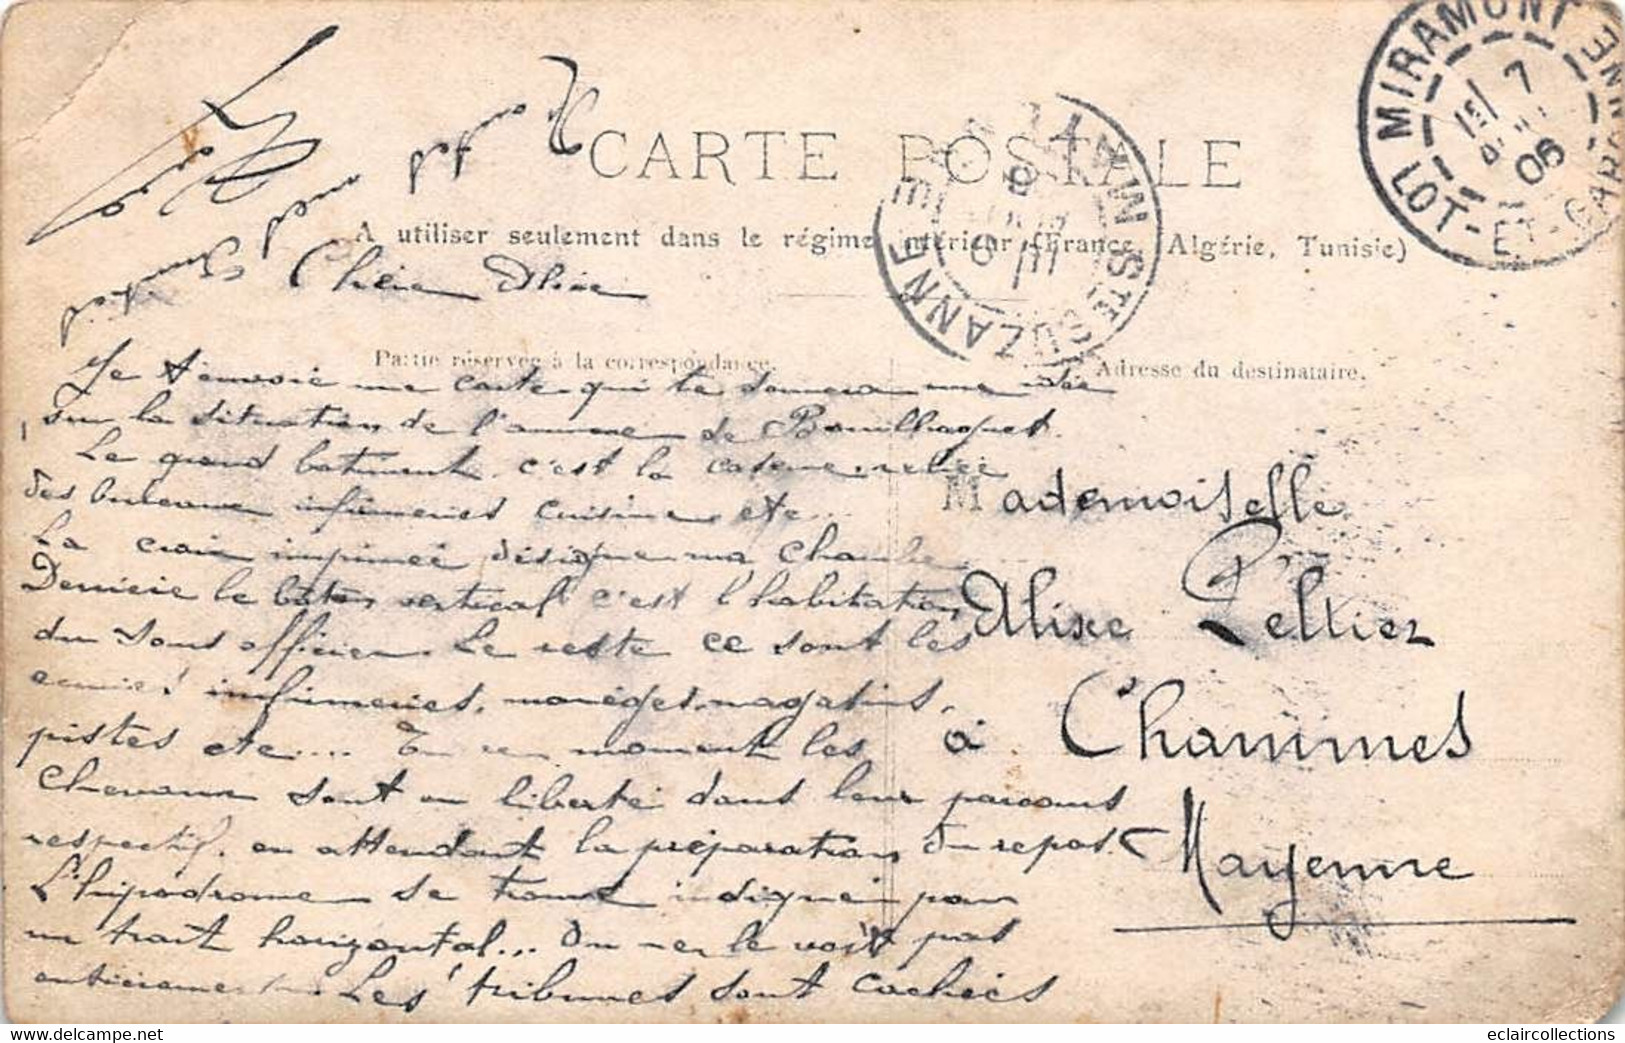 CARTE POSTALE
A utiliser seulement dans le régime intérieur (France, Algérie, Tunisie)
MIRAMONT
LOT-ET-GARONNE
7
06
STE SUZANNE
Partie réservée à la correspondance.
Adresse du destinataire.
Chère Alixe
Je t'envoie une carte qui te donnera une idée
sur la situation de l'annexe de Bouilhaguet.
Le grand batiment c'est la caserne
des bureaux infirmeries cuisine etc...
La croix imprimée désigne ma chambre
Derrière le bâton vertical c'est l'habitation
du sous officier. Le reste ce sont les
écuries infirmeries, manèges, magasins,
pistes etc.... En ce moment les
chevaux sont en liberté dans leur parcours
respectif, en attendant la préparation du repas.
L'hippodrome se trouve indiqué par
un trait horizontal... On ne le voit pas
entièrement Les tribunes sont cachées
Mademoiselle
Alixe Peltier
à Chammes
Mayenne
eclaircollections